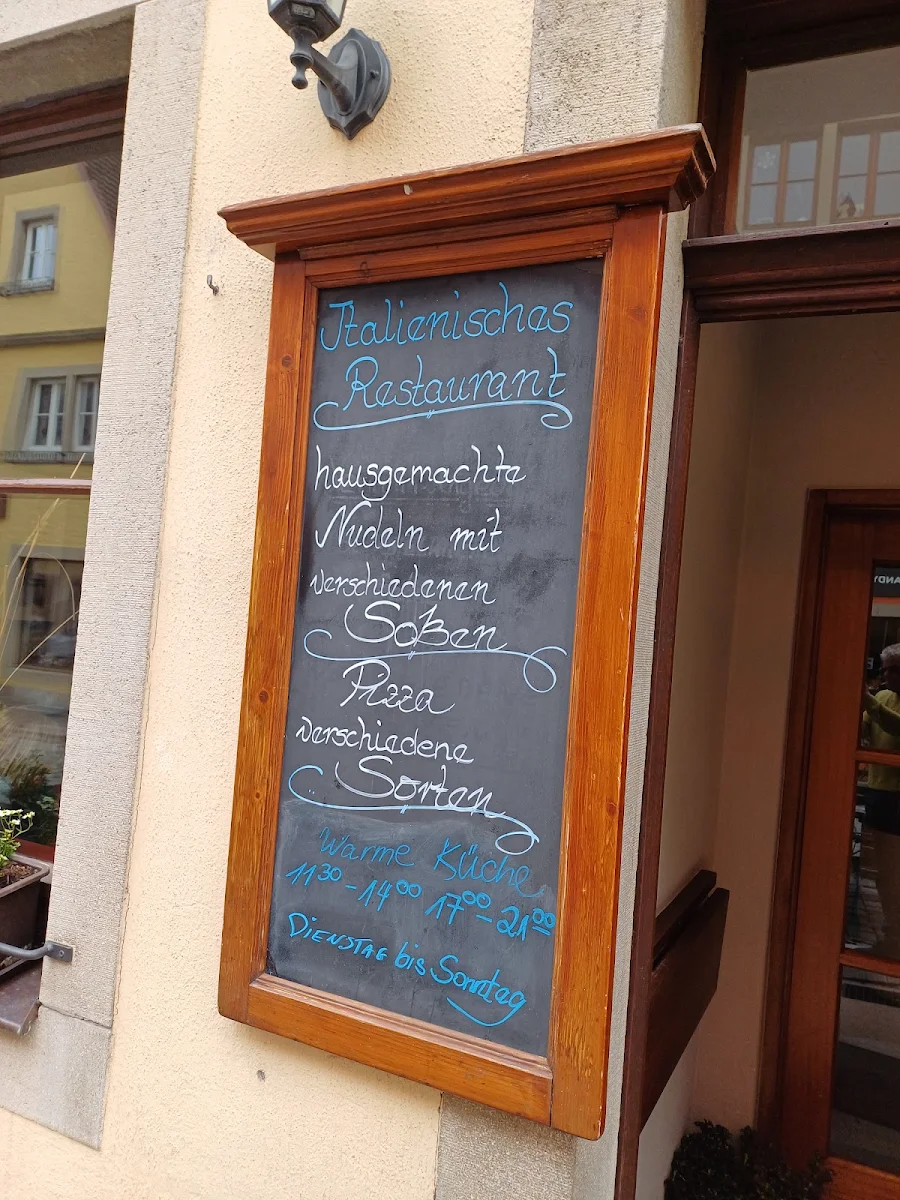 Italienisches
Restaurant
hausgemachte
Nudeln mit
verschiedenen
Soßen
Pizza
verschiedene
Sorten
Warme Küche
11³⁰ - 14⁰⁰ 17⁰⁰ - 21⁰⁰
Dienstag bis Sonntag